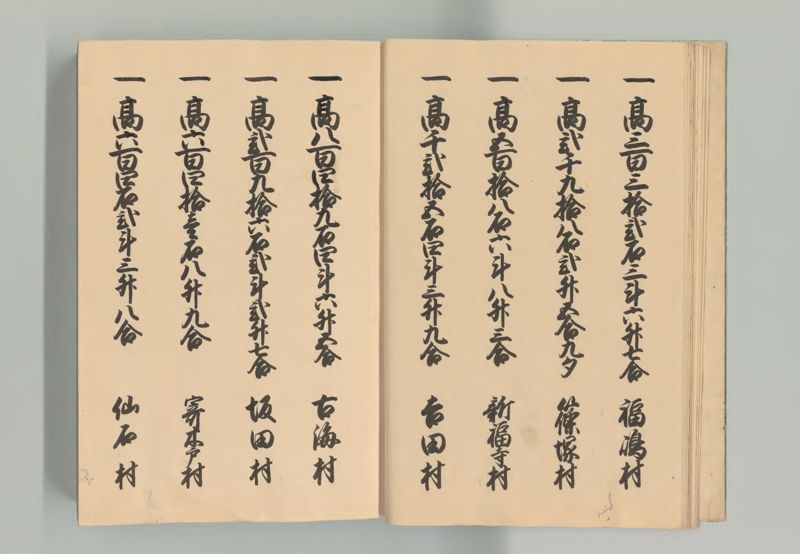 一 高三百三拾弐石三斗六升七合 福嶋村
一 高弐千九拾八石弐升五合九夕 篠塚村
一 高五百拾八石六斗八升三合 新福寺村
一 高千弐拾五石四斗三升九合 吉田村
一 高八百四拾九石四斗六升五合 古海村
一 高弐百九拾六石弐斗弐升七合 坂田村
一 高六百四拾壱石八升九合 寄木戸村
一 高六百四石弐斗三升八合 仙石村